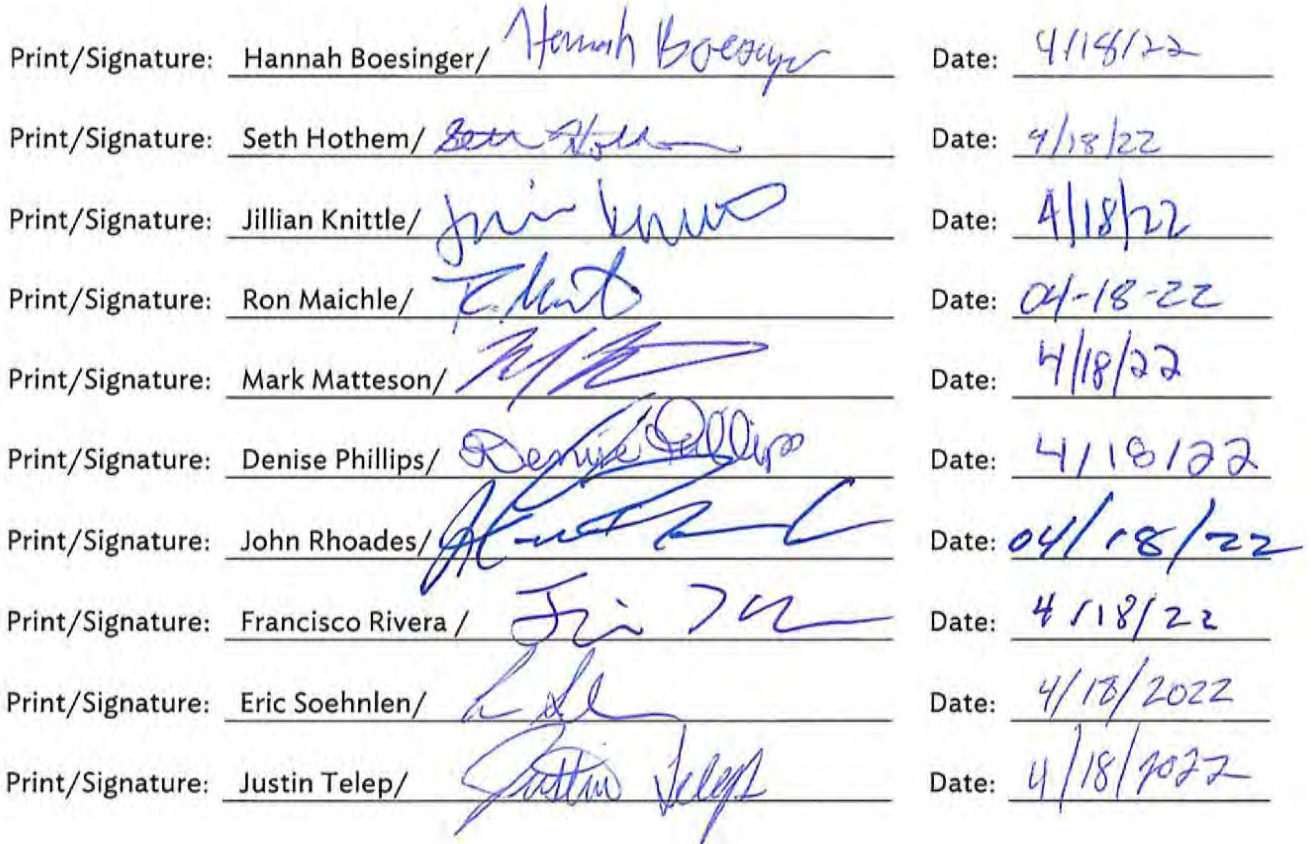 Print/Signature: Hannah Boesinger/ Hannah Boesinger Date: 4/18/22
Print/Signature: Seth Hothem/ Seth Date: 4/18/22
Print/Signature: Jillian Knittle/ Date: 4/18/22
Print/Signature: Ron Maichle/ Date: 04-18-22
Print/Signature: Mark Matteson/ Date: 4/18/22
Print/Signature: Denise Phillips/ Denise Phillips Date: 4/18/22
Print/Signature: John Rhoades/ Date: 04/18/22
Print/Signature: Francisco Rivera / Date: 4/18/22
Print/Signature: Eric Soehnlen/ Date: 4/18/2022
Print/Signature: Justin Telep/ Justin Telep Date: 4/18/2022